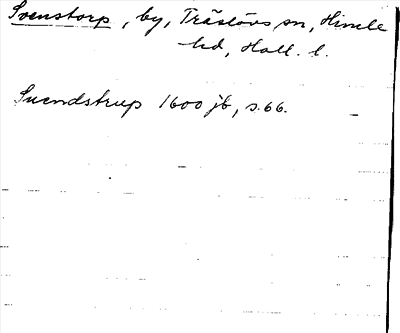 Svenstorp, by, Träslövs sn, Himle
hd, Hall. l.
Suendstrup 1600 jb, s. 66.